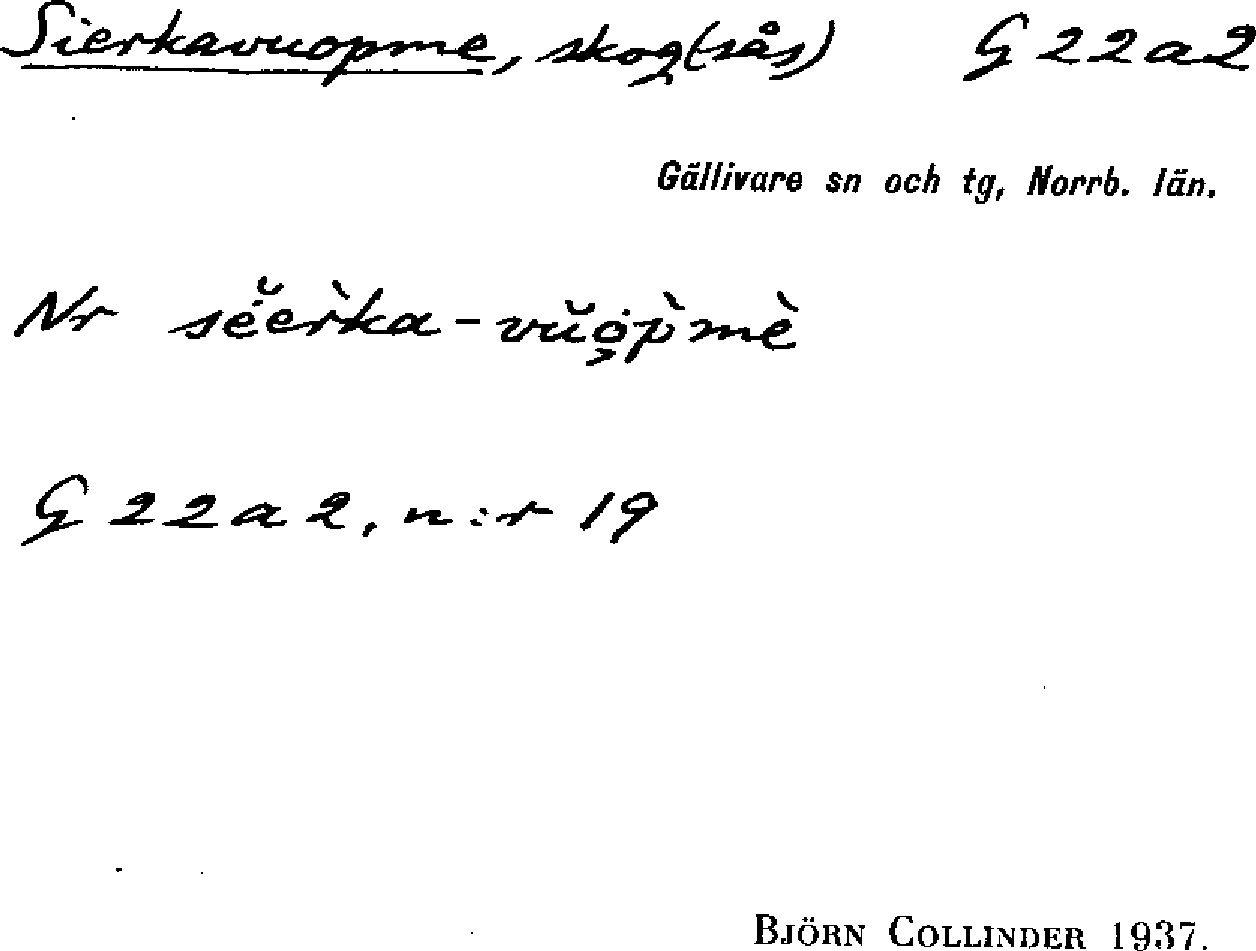 Sierkavuopme, skog(sås) G22a2
Gällivare sn och tg, Norrb. län.
Nr sĕ̇er̀ka-vŭọ̇p̀mè
G22a2, n:r 19
BJÖRN COLLINDER 1937.